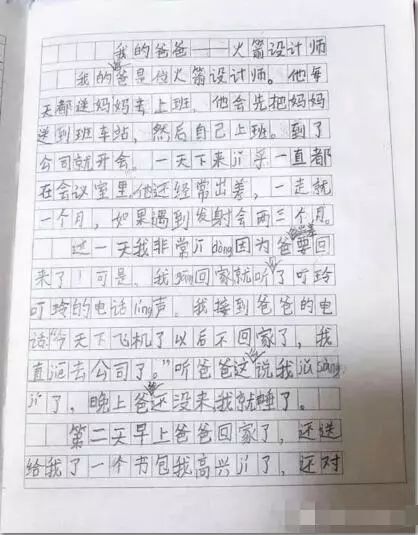 我的爸爸——火箭设计师
我的爸是位火箭设计师。他每
天都送妈妈去上班,他会先把妈妈
送到班车站,然后自己上班。到了
公司就开会。一天下来jī乎一直都
在会议室里。他还经常出差,一走就
一个月,如果遇到发射会两三个月。
这一天我非常jī dòng因为爸出差要回
来了!可是,我gāng回家就听了叮玲
叮玲的电话líng声。我接到爸爸的电
话:“今天下飞机了以后不回家了,我
直jiē去公司了。”听爸爸这说我jǔ sàng
jí了,晚上爸还没来我就睡了。
第二天早上爸爸回家了,还送
给我了一个书包我高兴jí了,还对